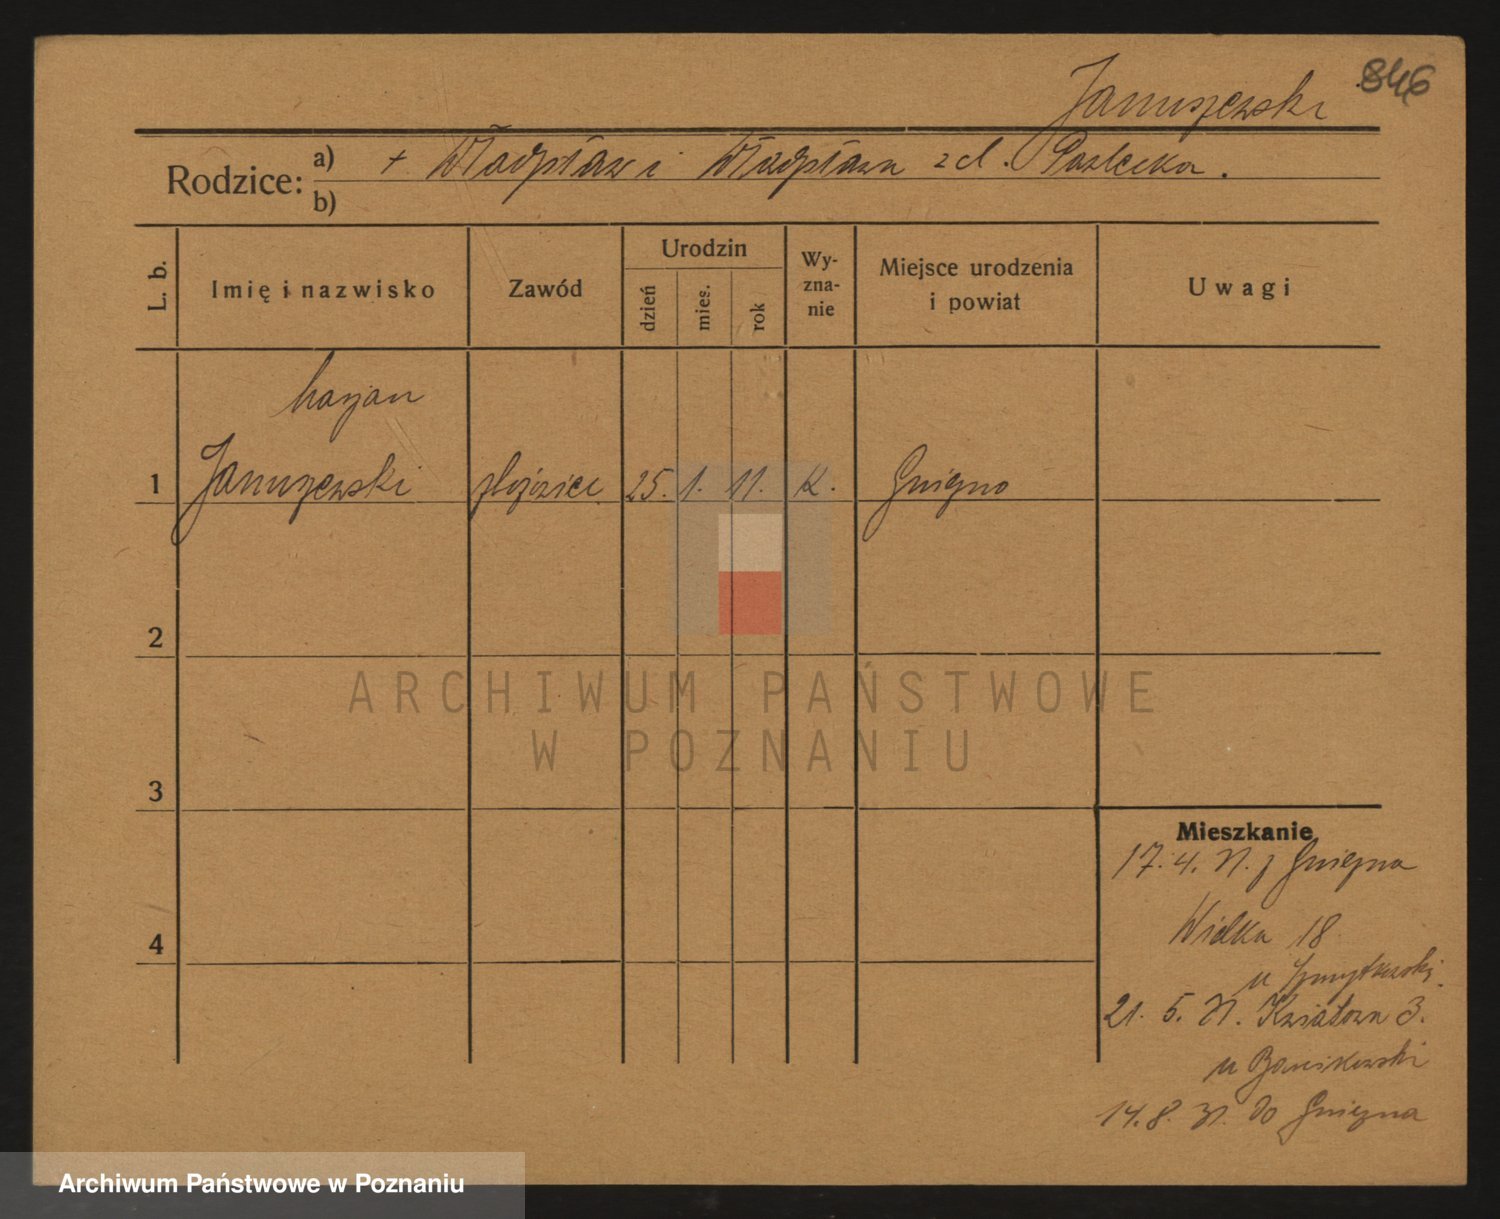 Januszewski 846
Rodzice: a) + Władysław i Władysława z d. Pawlicka.
b)
L. b. Imię i nazwisko Zawód Urodzin dzień mies. rok Wyznanie Miejsce urodzenia i powiat Uwagi
Marjan
1 Januszewski 25. 1. 11. K. Gniezno
2
ARCHIWUM PAŃSTWOWE
W POZNANIU
3
Mieszkanie
17. 4. 31. z Gniezna
4
Wielka 18
u
21. 5. 31. Kwiatowa 3.
u
14. 8. 31. do Gniezna
Archiwum Państwowe w Poznaniu